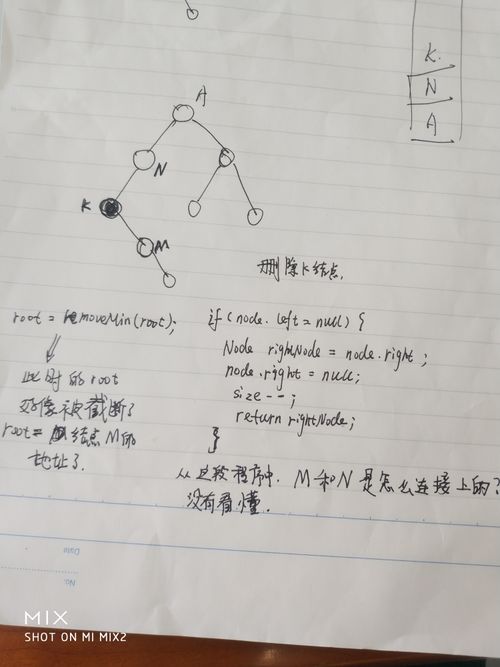 K.
N
A
A
N
K
M
删除K结点.
root = removeMin(root);
此时的root
好像被截断了
root= 结点M的
地址了.
if(node.left=null) {
Node rightNode = node.right;
node.right = null;
size--;
return rightNode;
}
从这段程序中, M和N是怎么连接上的?
没有看懂.
Date
No.
MIX
SHOT ON MI MIX2